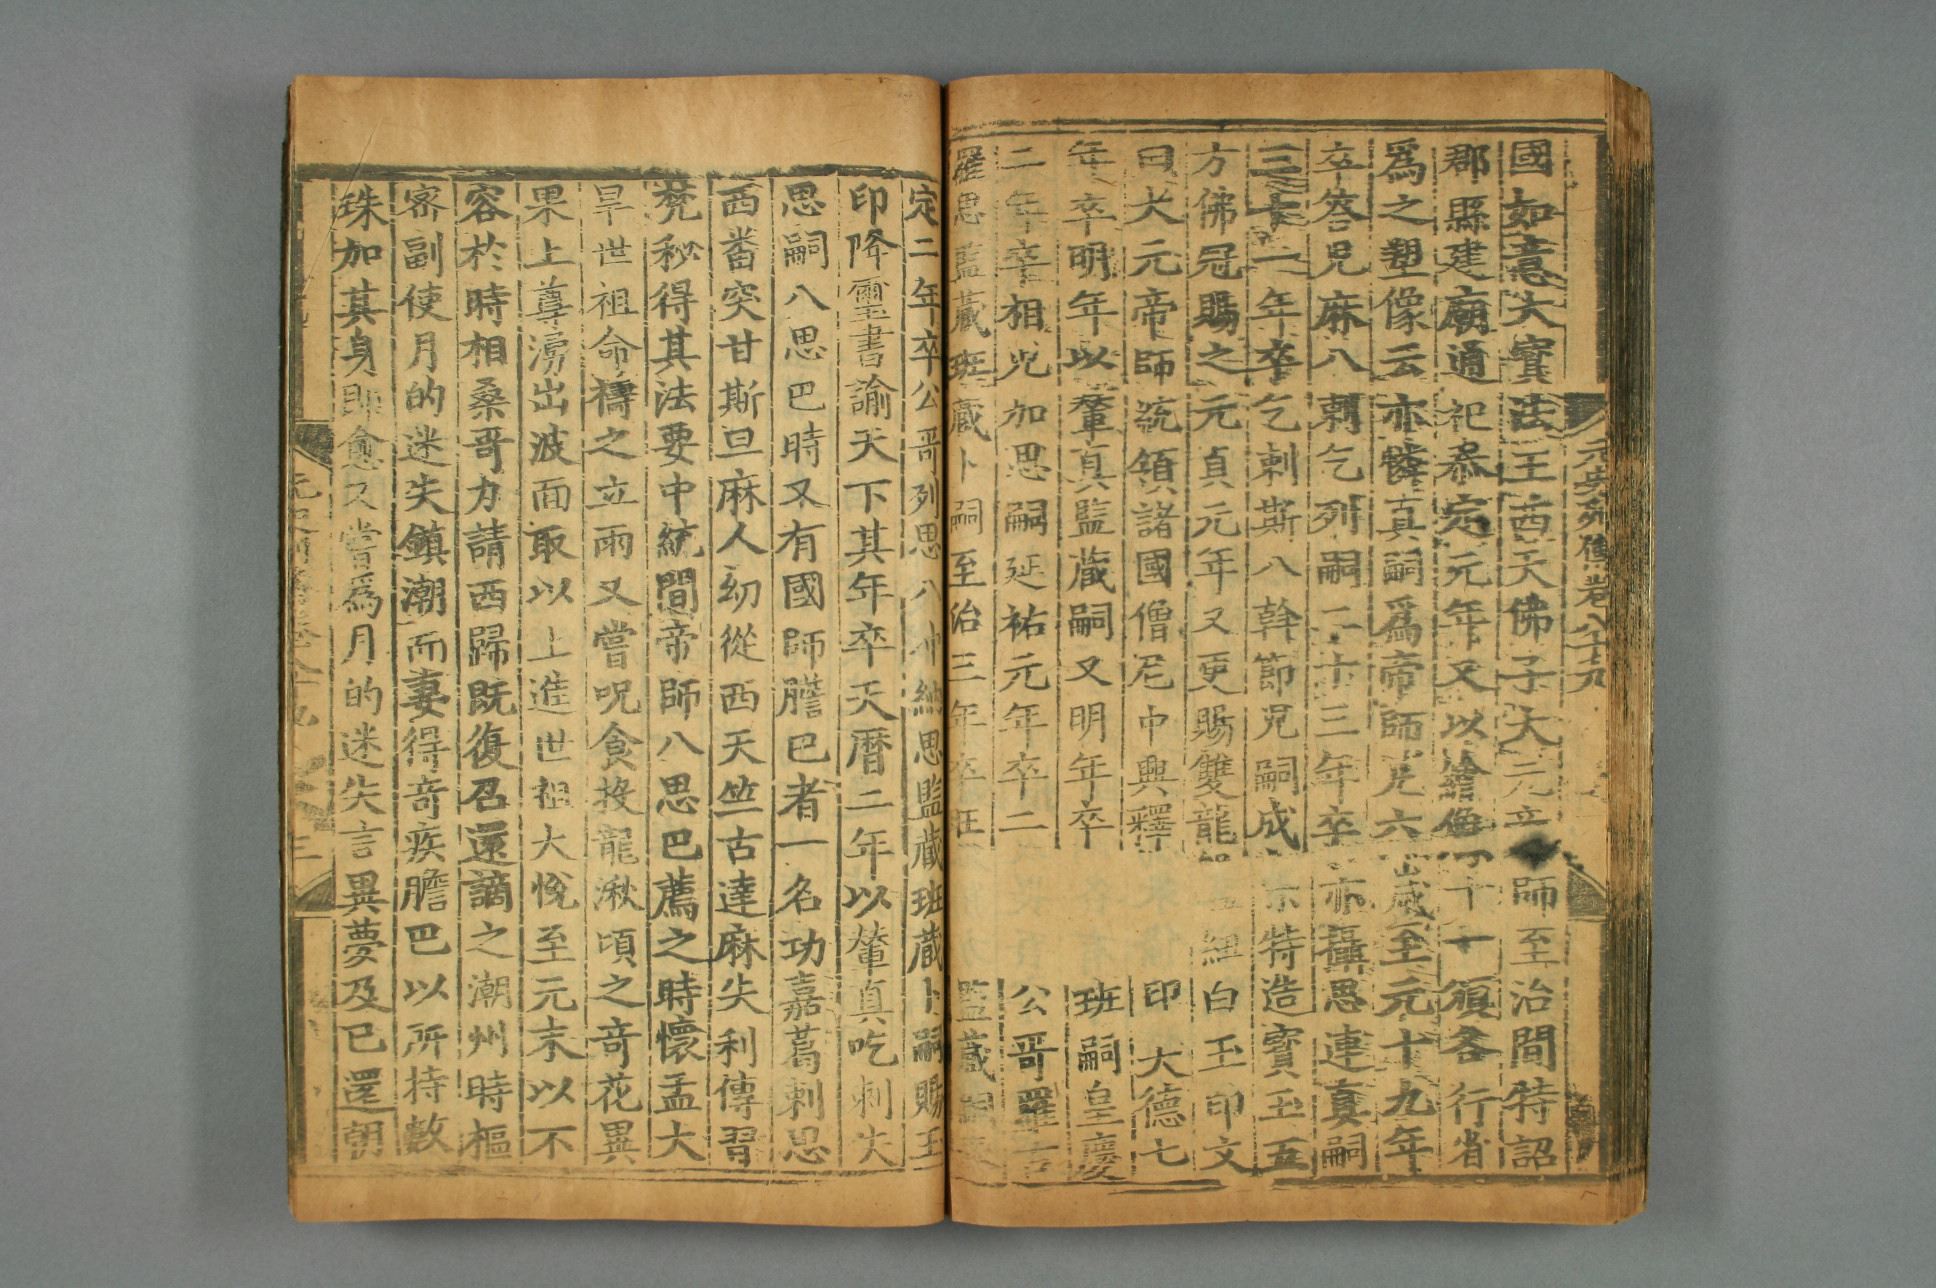 國如意大寶法王西天佛子大元帝師至治間特詔
郡縣建廟通祀泰定元年又以繪像十一頒各行省
爲之塑像云亦憐真嗣爲帝師凡六歲至元十九年
卒答兒麻八剌乞列嗣二十三年卒亦攝思連真嗣
三十一年卒乞剌斯八斡節兒嗣成宗特造寶玉五
方佛冠賜之元貞元年又更賜雙龍紐白玉印文
曰大元帝師統領諸國僧尼中興釋印大德七
年卒明年以輦真監藏嗣又明年卒班嗣皇慶
二年卒相兒加思嗣延祐元年卒二公哥羅
羅思監藏班藏卜嗣至治三年卒旺監藏嗣
元史列傳卷八十九
定二年卒公哥列思八冲納思監藏班藏卜嗣賜玉
印降璽書諭天下其年卒天曆二年以輦真吃剌失
思嗣八思巴時又有國師膽巴者一名功嘉葛剌思
西番突甘斯旦麻人幼從西天竺古達麻失利傳習
梵秘得其法要中統間帝師八思巴薦之時懷孟大
旱世祖命禱之立雨又嘗呪食投龍湫頃之奇花異
果上尊湧出波面取以上進世祖大悅至元末以不
容於時相桑哥力請西歸既復召還謫之潮州時樞
密副使月的迷失鎮潮而妻得奇疾膽巴以所持數
珠加其身即愈又嘗爲月的迷失言異夢及已還朝